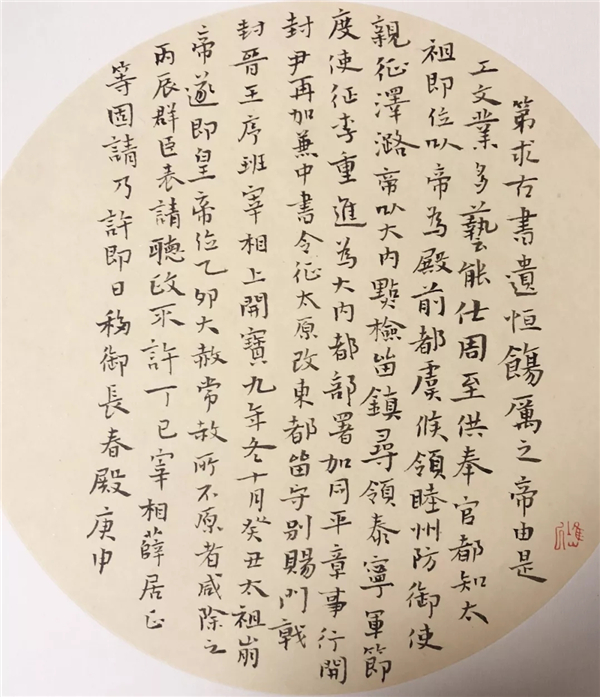 第求古書遺恒飭厲之帝由是
工文業多藝能仕周至供奉官都知太
祖即位以帝為殿前都虞候領睦州防御使
親征澤潞帝以大內點檢留鎮尋領泰寧軍節
度使征李重進為大內都部署加同平章事行開
封尹再加兼中書令征太原改東都留守別賜門戟
封晉王序班宰相上開寶九年冬十月癸丑太祖崩
帝遂即皇帝位乙卯大赦常赦所不原者咸除之
丙辰群臣表請聽政不許丁巳宰相薛居正
等固請乃許即日移御長春殿庚申